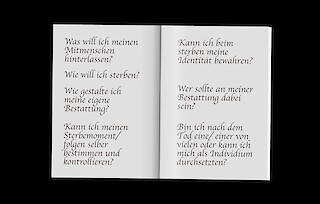 Was will ich meinen
Mitmenschen
hinterlassen?
Wie will ich sterben?
Wie gestalte ich
meine eigene
Bestattung?
Kann ich meinen
Sterbemoment/
folgen selber
bestimmen und
kontrollieren?
Kann ich beim
sterben meine
Identität bewahren?
Wer sollte an meiner
Bestattung dabei
sein?
Bin ich nach dem
Tod eine/ einer von
vielen oder kann ich
mich als Individium
durchsetzten?